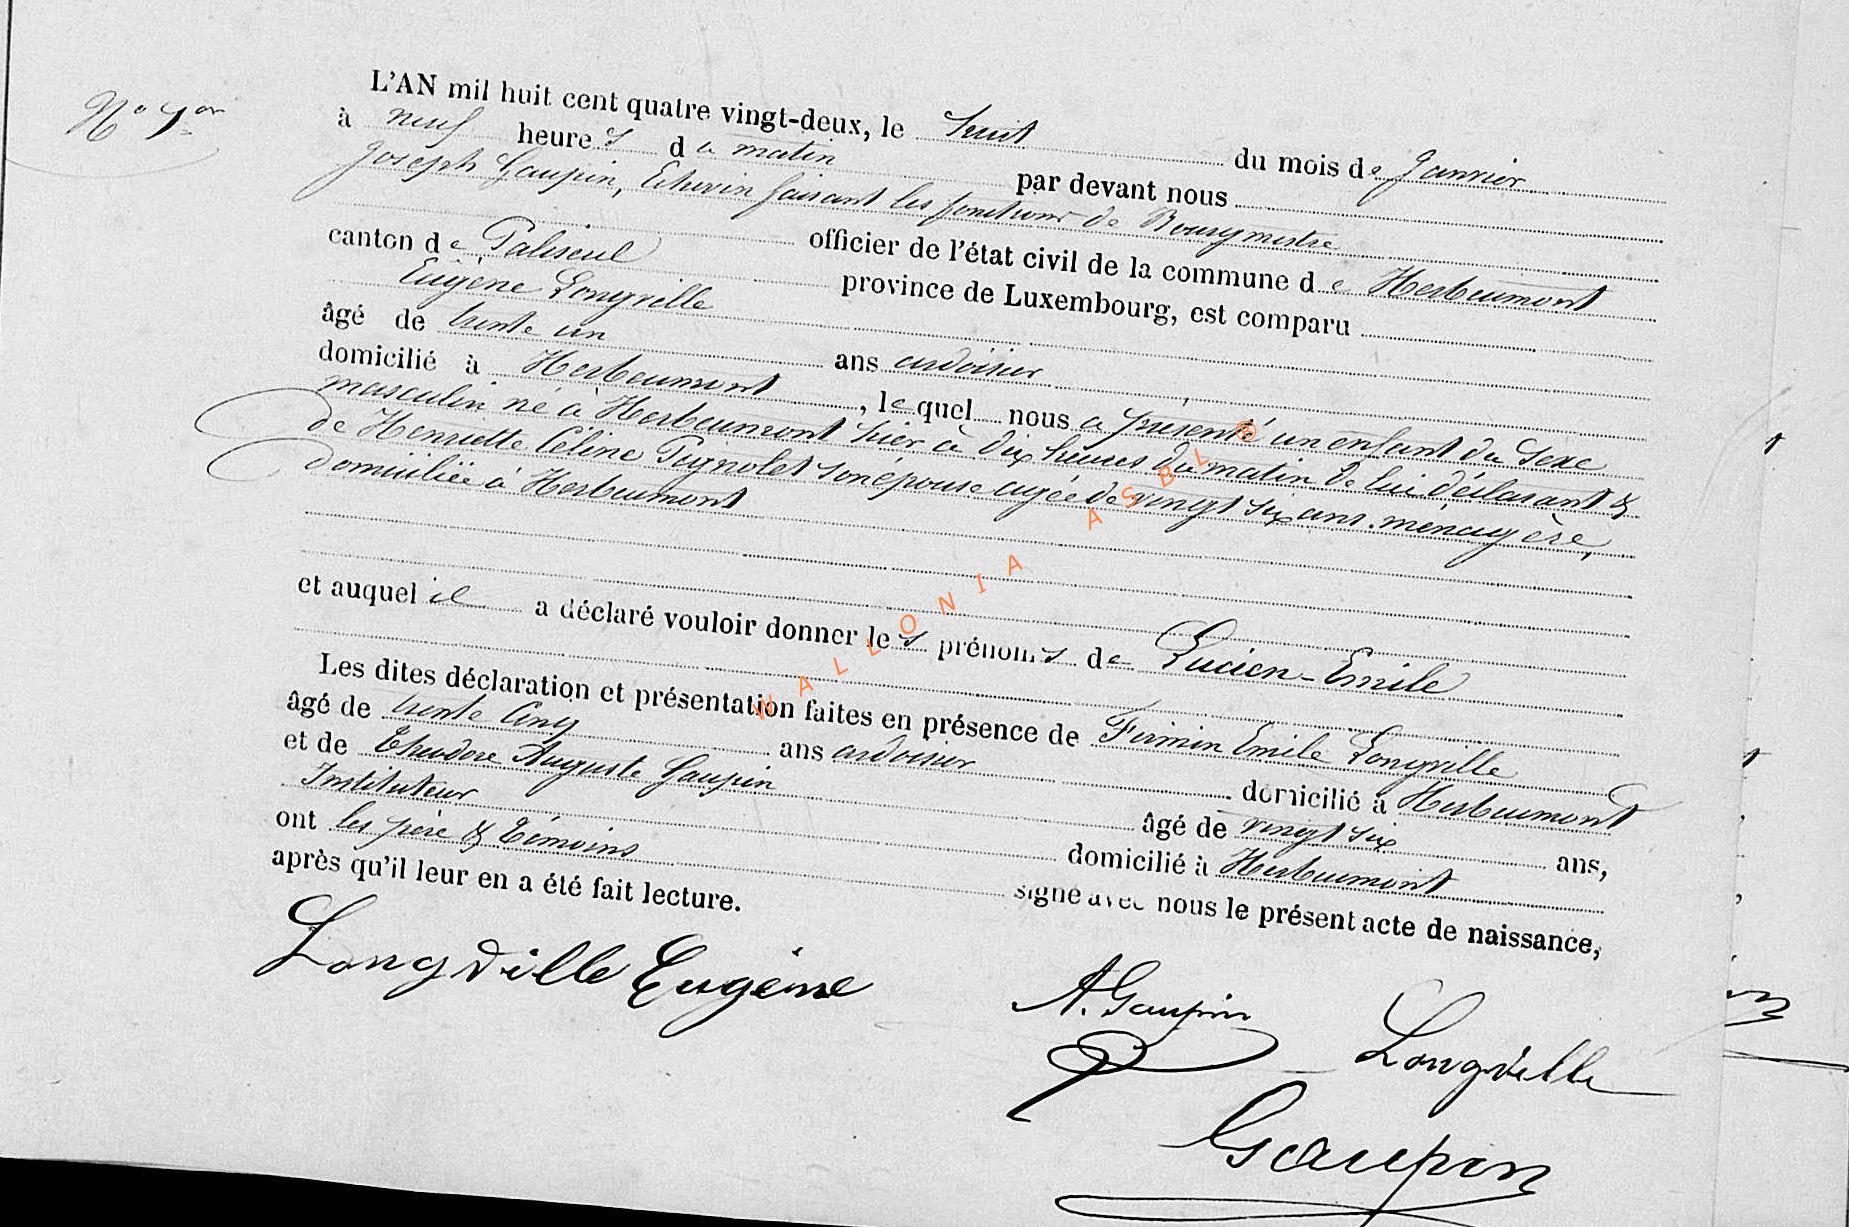 N° 1er
L'AN mil huit cent quatre vingt-deux, le huit du mois de Janvier
à neuf heures du matin par devant nous
Joseph Gaupin, Echevin faisant les fonctions de Bourgmestre
officier de l'état civil de la commune de Herbeumont
canton de Paliseul province de Luxembourg, est comparu
Eugène Longville
âgé de trente un ans ardoisier
domicilié à Herbeumont, lequel nous a présenté un enfant du sexe
masculin né à Herbeumont hier à dix heures du matin de lui déclarant &
de Henriette Céline Pignolet son épouse agée de vingt six ans. ménagère,
domiciliée à Herbeumont
et auquel il a déclaré vouloir donner les prénoms de Lucien-Emile
Les dites déclaration et présentation faites en présence de Firmin Emile Longville
âgé de trente cinq ans ardoisier domicilié à Herbeumont
et de Théodore Auguste Gaupin âgé de vingt six ans,
Instituteur domicilié à Herbeumont
ont les père & témoins signé avec nous le présent acte de naissance,
après qu'il leur en a été fait lecture.
Longville Eugène
A. Gaupin
Longville
Gaupin
WALLONIA ASBL ®